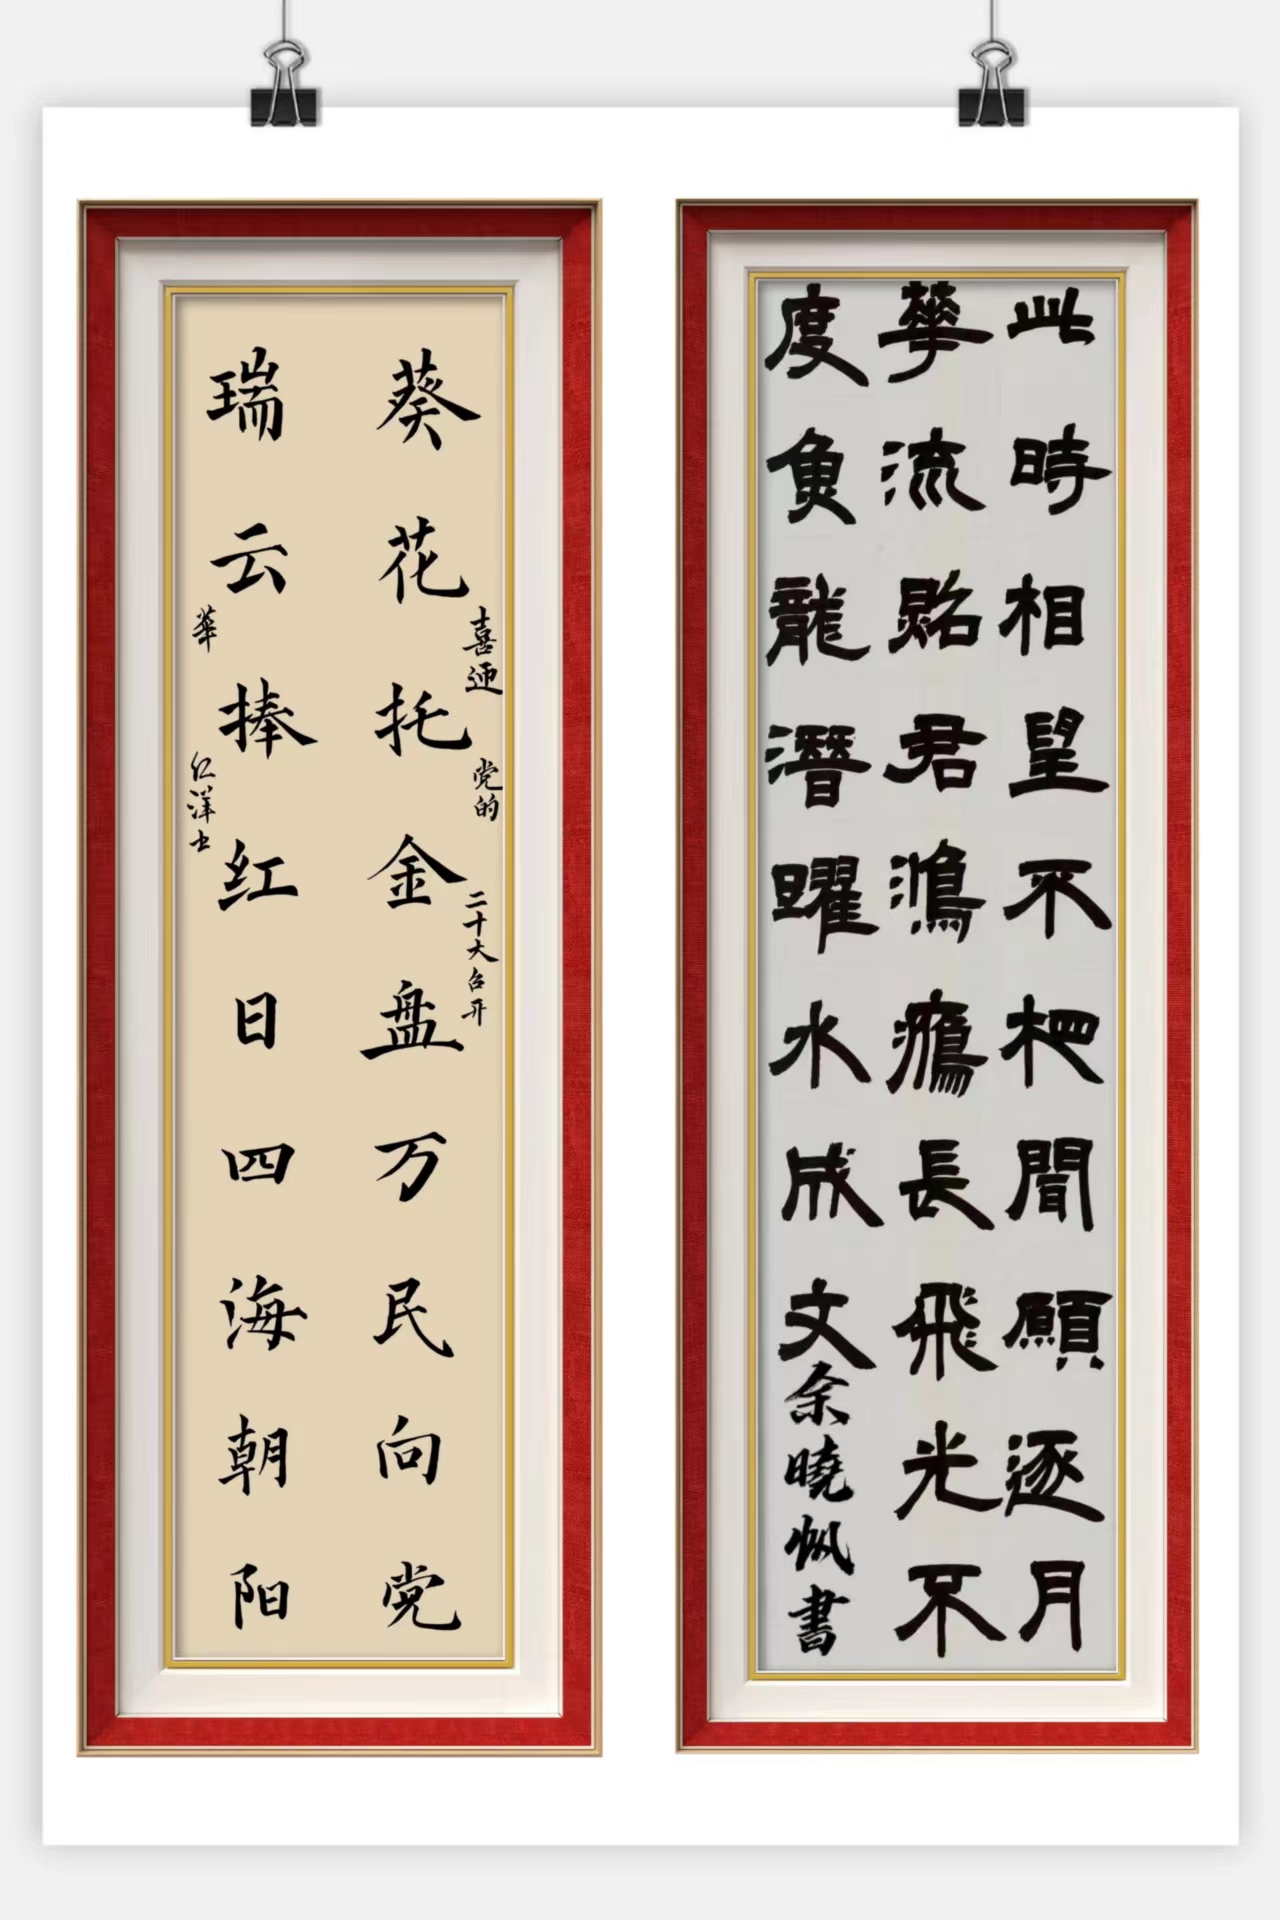 此時相望不相聞願逐月
華流照君鴻雁長飛光不
度魚龍潛躍水成文
余曉帆書
喜迎党的二十大召开
葵花托金盘万民向党
瑞云捧红日四海朝阳
華仁洋书